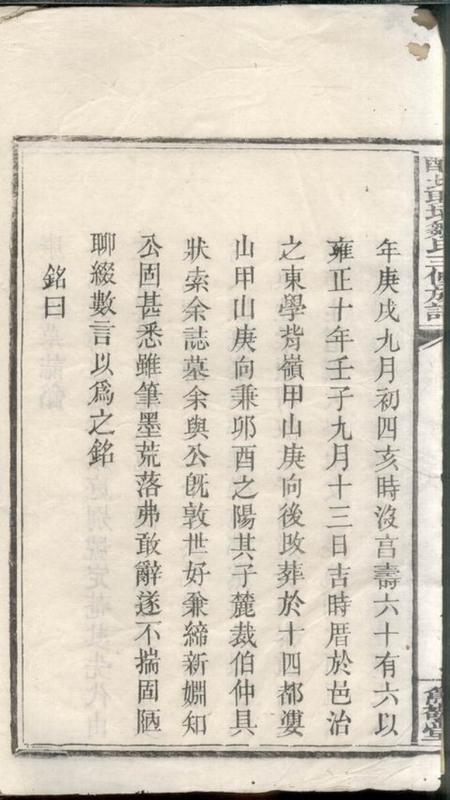 年庚戌九月初四亥時沒享壽六十有六以
雍正十年壬子九月十三日吉時厝於邑治
之東學背嶺甲山庚向後改葬於十四都凄
山甲山庚向兼卯酉之陽其子麓裁伯仲具
狀索余誌墓余與公旣敦世好兼締新婣知
公固甚悉雖筆墨荒落弗敢辭遂不揣固陋
聊綴數言以爲之銘
銘曰